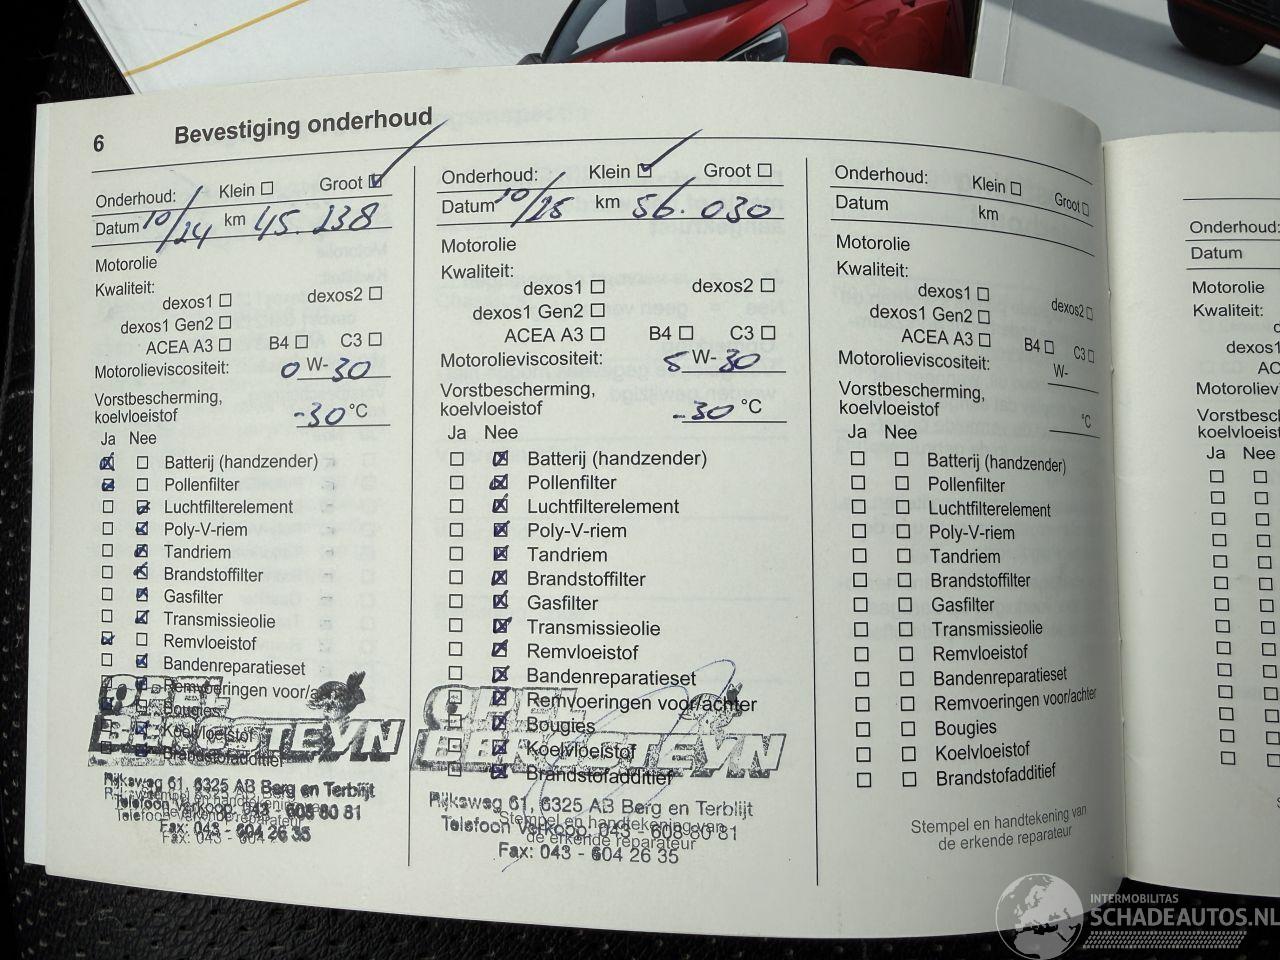 6 Bevestiging onderhoud
Onderhoud: Klein ☐ Groot ☑
Datum 10/24 km 45.238
Motorolie
Kwaliteit:
dexos1 ☐ dexos2 ☐
dexos1 Gen2 ☐
ACEA A3 ☐ B4 ☐ C3 ☐
Motorolieviscositeit: 0 W-30
Vorstbescherming,
koelvloeistof -30 °C
Ja Nee
☒ ☐ Batterij (handzender)
☒ ☐ Pollenfilter
☐ ☒ Luchtfilterelement
☐ ☒ Poly-V-riem
☐ ☒ Tandriem
☐ ☒ Brandstoffilter
☐ ☒ Gasfilter
☐ ☒ Transmissieolie
☒ ☐ Remvloeistof
☐ ☒ Bandenreparatieset
Remvoeringen voor/a
Bougies
Koelvloeistof
Brandstofadditief
OPEL
Rijksweg 61, 6325 AB Berg en Terblijt
Telefoon Verkoop: 043 - 608 80 81
Fax: 043 - 604 26 35
Onderhoud: Klein ☑ Groot ☐
Datum 10/25 km 56.030
Motorolie
Kwaliteit:
dexos1 ☐ dexos2 ☐
dexos1 Gen2 ☐
ACEA A3 ☐ B4 ☐ C3 ☐
Motorolieviscositeit: 5 W-30
Vorstbescherming,
koelvloeistof -30 °C
Ja Nee
☐ ☒ Batterij (handzender)
☐ ☒ Pollenfilter
☐ ☒ Luchtfilterelement
☐ ☒ Poly-V-riem
☐ ☒ Tandriem
☐ ☒ Brandstoffilter
☐ ☒ Gasfilter
☐ ☒ Transmissieolie
☐ ☒ Remvloeistof
☐ ☒ Bandenreparatieset
☐ ☒ Remvoeringen voor/achter
☐ ☒ Bougies
☐ ☒ Koelvloeistof
☐ ☒ Brandstofadditief
OPEL
Rijksweg 61, 6325 AB Berg en Terblijt
Telefoon Verkoop: 043 - 608 80 81
Stempel en handtekening van
de erkende reparateur
Fax: 043 - 604 26 35
Onderhoud: Klein ☐ Groot ☐
Datum km
Motorolie
Kwaliteit:
dexos1 ☐ dexos2 ☐
dexos1 Gen2 ☐
ACEA A3 ☐ B4 ☐ C3 ☐
Motorolieviscositeit: W-
Vorstbescherming,
koelvloeistof °C
Ja Nee
☐ ☐ Batterij (handzender)
☐ ☐ Pollenfilter
☐ ☐ Luchtfilterelement
☐ ☐ Poly-V-riem
☐ ☐ Tandriem
☐ ☐ Brandstoffilter
☐ ☐ Gasfilter
☐ ☐ Transmissieolie
☐ ☐ Remvloeistof
☐ ☐ Bandenreparatieset
☐ ☐ Remvoeringen voor/achter
☐ ☐ Bougies
☐ ☐ Koelvloeistof
☐ ☐ Brandstofadditief
Stempel en handtekening van
de erkende reparateur
Onderhoud:
Datum
Motorolie
Kwaliteit:
dexos1
AC
Motoroliev
Vorstbesc
koelvloeist
Ja Nee
INTERMOBILITAS
SCHADEAUTOS.NL